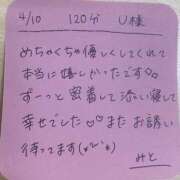 4/10 120分 U様
めちゃくちゃ優しくしてくれて
本当に嬉しかったです♡
ずーっと密着して添い寝して
幸せでした♡♡ また お誘い
待ってます(*ˊᵕˋ*)
みと